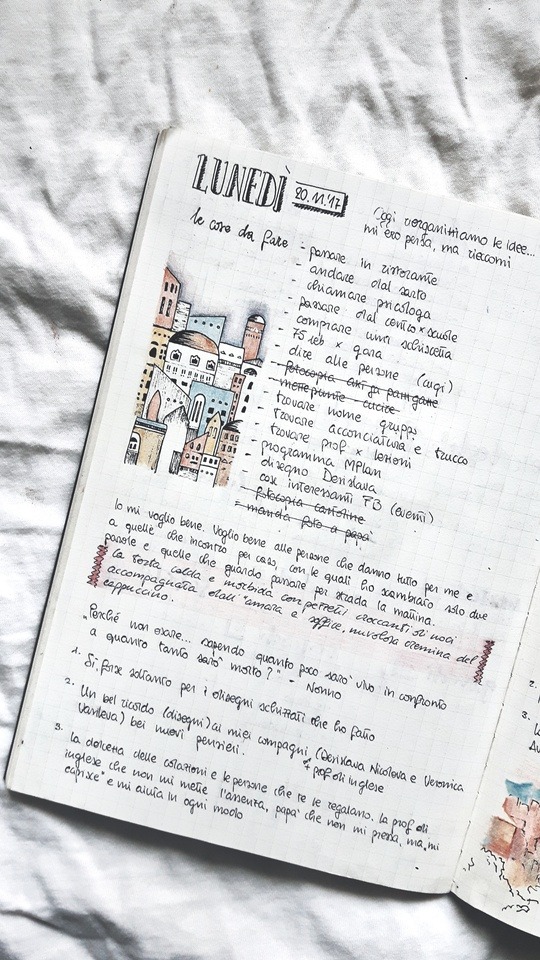 LUNEDÌ
20.11.'17
Oggi riorganizziamo le idee...
mi ero persa, ma rieccomi
le cose da fare
- passare in ristorante
- andare dal sarto
- chiamare psicologa
- passare dal centro x scuole
- comprare una schiscetta
- 75 leb x gara
- dire alle persone (auguri)
- fotocopia
- cucire
- trovare nome gruppo
- trovare acconciatura e trucco
- trovare prof x lezioni
- programma MPlam
- disegno Denislava
- cose interessanti FB (eventi)
- fotocopia cartoline
- manda foto a papà
Io mi voglio bene. Voglio bene alle persone che danno tutto per me e
a quelle che incontro per caso, con le quali ho scambiato solo due
parole e quelle che guardo passare per strada la mattina.
la torta calda e morbida con pezzetti croccanti di noci
accompagnata dall'amara e soffice, nuvolosa cremina del
cappuccino.
"Perché non osare... sapendo quanto poco sarò vivo in confronto
a quanto tanto sarò morto?" - Nonno
1. Sì, forse soltanto per i disegni schizzati che ho fatto
2. Un bel ricordo (disegni) ai miei compagni (Denislava Nicolova e Veronica
Vasileva) bei nuovi pensieri.
+ prof di inglese
3. La dolcezza delle colazioni e le persone che te le regalano. La prof di
inglese che non mi mette l'assenza, papà che non mi pressa, ma mi
capisce e mi aiuta in ogni modo
2.
3.